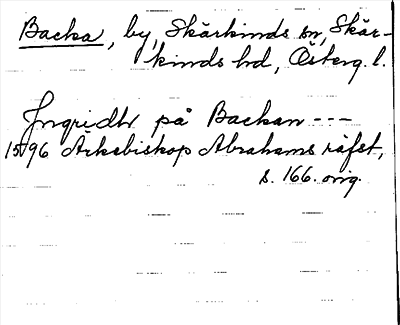 Backa, by, Skärkinds sn, Skär-
kinds hd, Österg. l.
Ingridtr på Backan ---
1596 Ärkebiskop Abrahams räfst,
s. 166. orig.